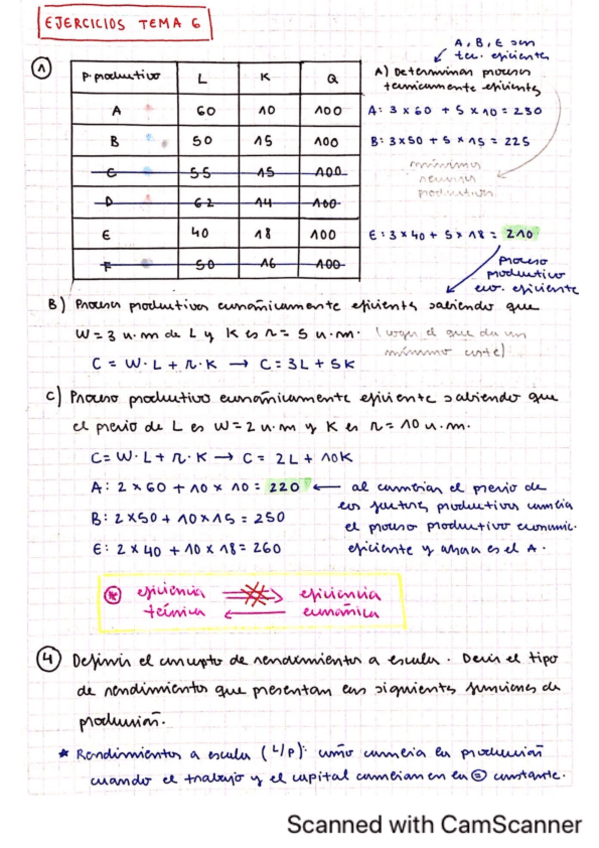 EJERCICIOS TEMA 6
A, B, E son
tec. eficientes
1
P. productivo L K Q
A 60 10 100
B 50 15 100
C 55 15 100
D 62 14 100
E 40 18 100
F 50 16 100
A) Determinar procesos
técnicamente eficientes
A: 3 x 60 + 5 x 10 = 230
B: 3x50 + 5 x 15 = 225
mínimos
recursos
productivos
E: 3 x 40 + 5 x 18 = 210
proceso
productivo
eco. eficiente
B) Procesos productivos económicamente eficientes sabiendo que
W = 3 u.m de L y K es r = 5 u.m. (coger el que da un
mínimo coste)
C = W · L + r · K → C = 3L + 5K
C) Proceso productivo económicamente eficiente sabiendo que
el precio de L es W = 2 u.m y K es r = 10 u.m.
C = W · L + r · K → C = 2L + 10K
A: 2 x 60 + 10 x 10 = 220 ← al cambiar el precio de
los factores productivos cambia
B: 2x50 + 10x15 = 250
el proceso productivo económic.
E: 2 x 40 + 10 x 18 = 260
eficiente y ahora es el A.
* eficiencia ⇒ eficiencia
técnica ← económica
4 Definir el concepto de rendimientos a escala. Decir el tipo
de rendimientos que presentan las siguientes funciones de
producción.
* Rendimientos a escala (L/P): cómo cambia la producción
cuando el trabajo y el capital cambian en la = constante.
Scanned with CamScanner